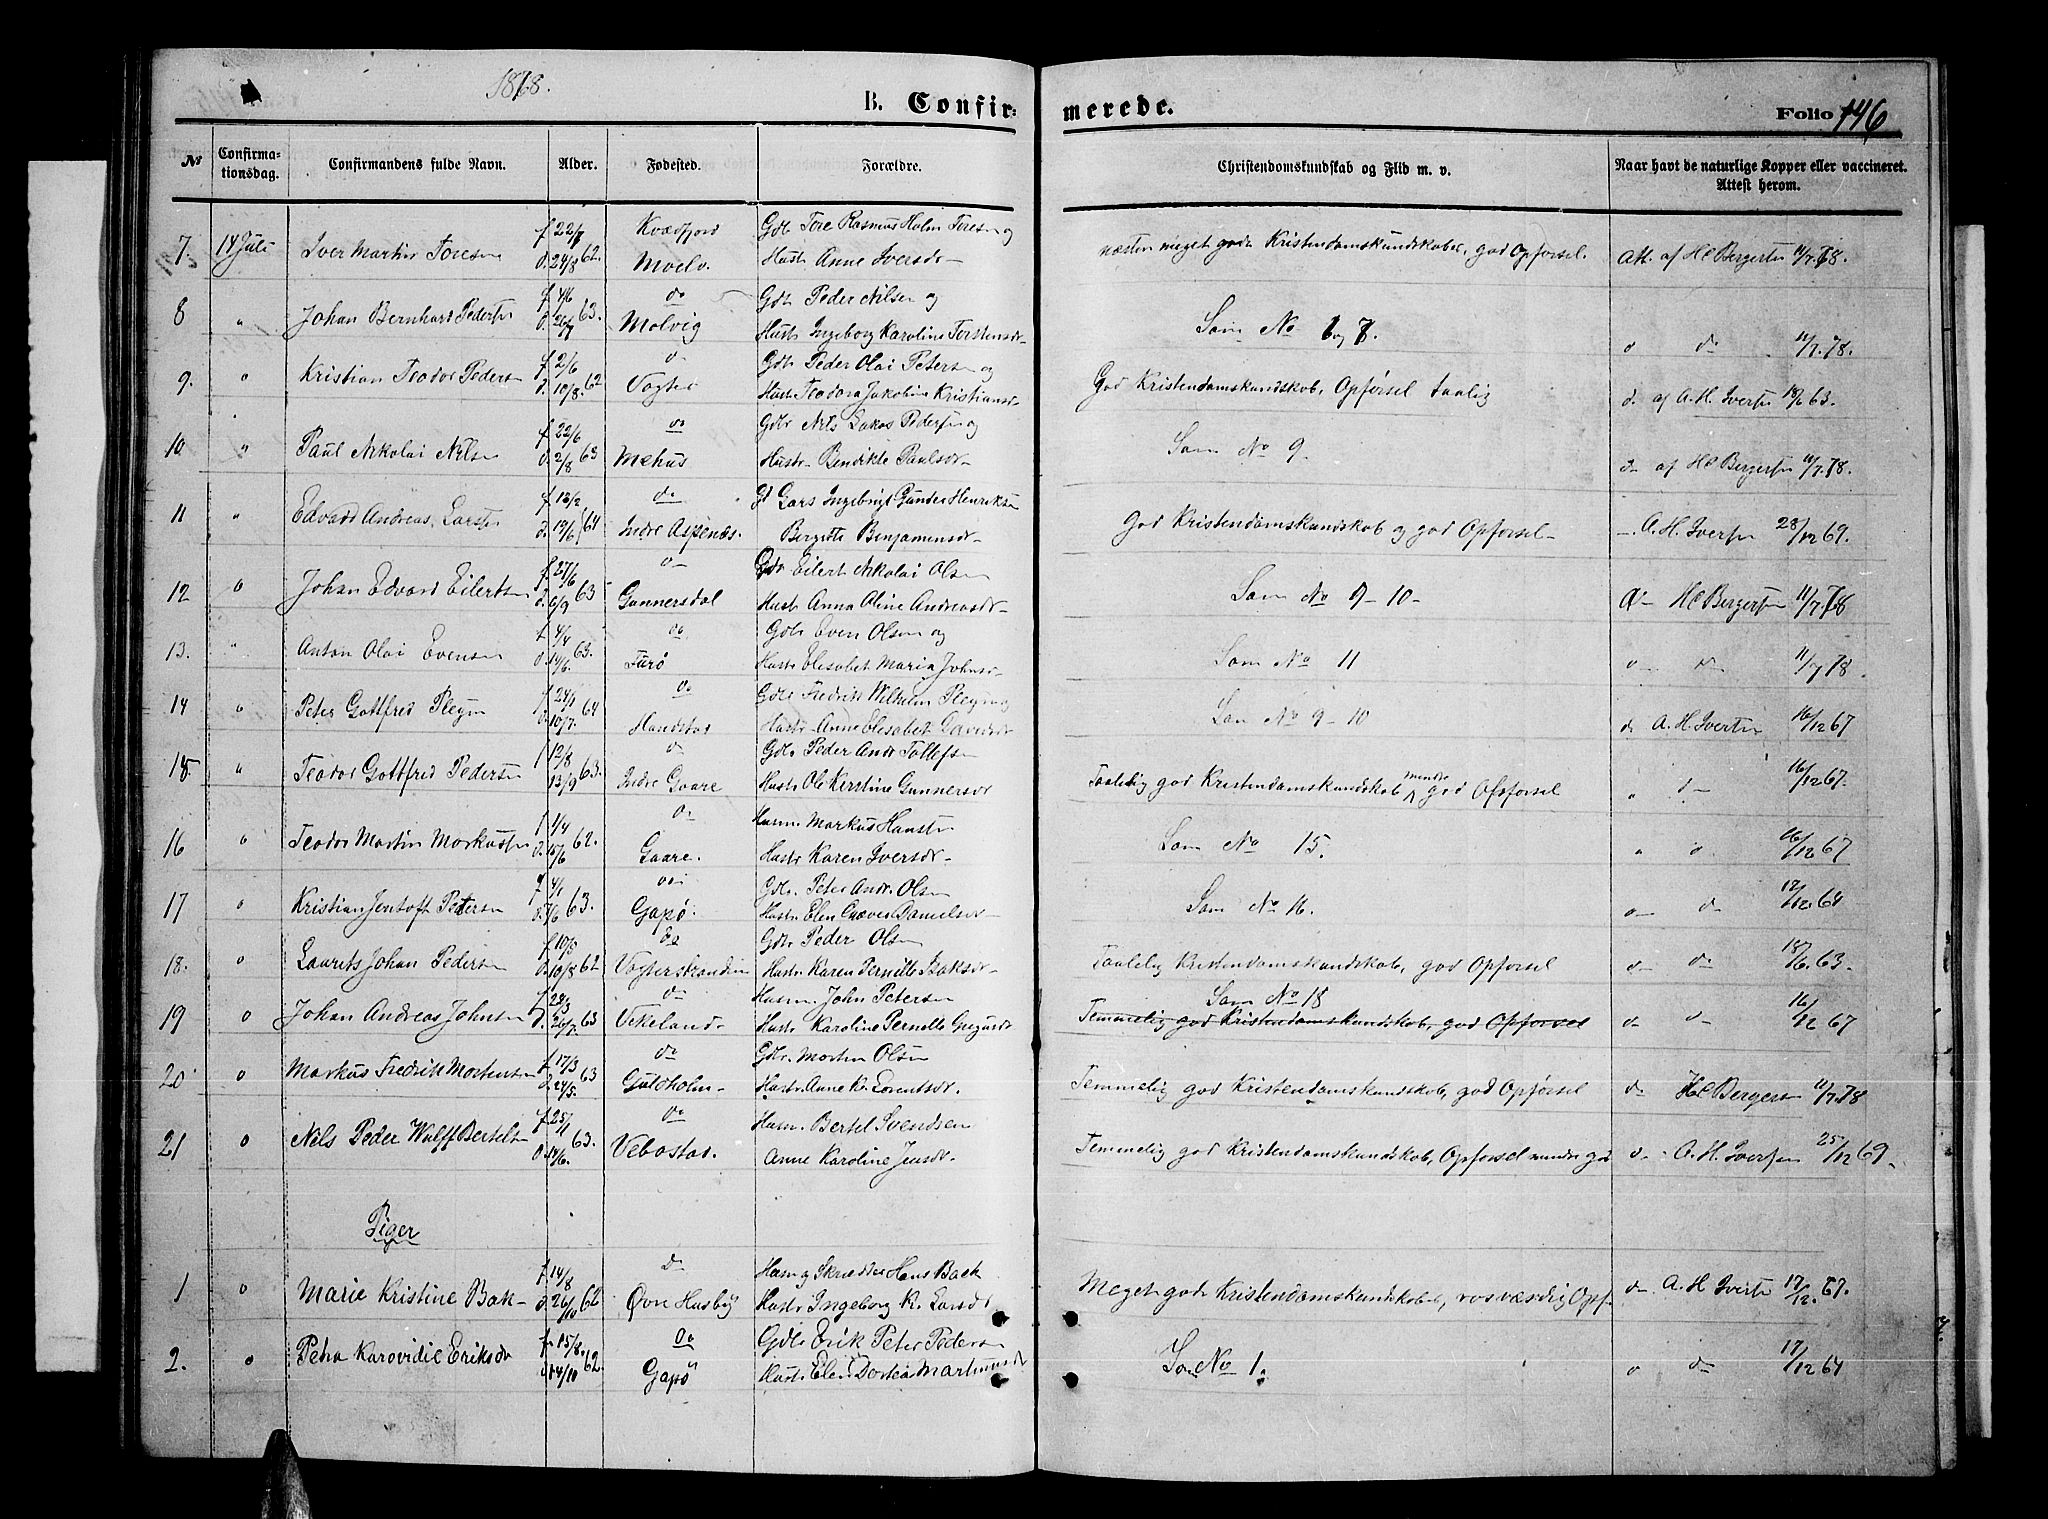 1878.
B. Confir-
merede.
Folio 146
No
Confirma-
tionsdag.
Confirmandens fulde Navn.
Alder.
Fødested.
Forældre.
Christendomskundskab og Flid m. v.
Naar havt de naturlige Kopper eller vaccineret.
Attest herom.
7. 14 Juli Iver Martin Toresen f. 22/7 d. 24/8 62. Kvædfjord Moelv. Gdb. Tore Rasmus Holm Toresen og
Hustr Anne Iversdr
næsten meget gode Kristendomskundskaber, god Opførsel. Att. af HC Bergersen 11/7.78.
8 " Johan Bernhard Pedersen f. 4/6 d. 26/7 63. do Molvig Gdb Peder Nilsen og
Hustr Ingeborg Karoline Torstensdr
Som No 6 og 7. " do 11/7.78.
9. " Kristian Teodor Pedersen f. 2/6 d. 10/8. 62 d. Vogter Gdb Peder Olai Petersen og
Hustr Teodora Jakobine Kristiansdr
God Kristendomskundskab, Opførsel taalig d. af A. H. Iversen 18/6 63.
10. " Paul Nikolai Nilsen f. 22/6 d. 2/8 63 do Mehus Gdb Nils Lukas Pedersen og
Hustr Bendikte Paulsdr
Som No 9. d. af HC Bergersen 11/7.78.
11 " Edvard Andreas Larsen f. 13/2 d. 19/6 64 do Indre Aspenæs. Gd Lars Ingebrigt Gunder Henriksen
Bergitte Benjaminsdr
God Kristendomskundskab og god Opførsel - A. H. Iversen 28/12 69.
12 " Johan Edvard Eilertsen f. 27/6 d. 6/9 63 d Gunnersdal Gdb Eilert Nikolai Olsen
Hustr Anna Oline Andreasdr
Som No 9-10- do HC Bergersen 11/7.78
13. " Anton Olai Evensen f. 4/4 d. 14/6. 63. do Furø Gdb Even Olsen og
Hustr Elisabet Maria Johnsdr
Som No 11 " do 11/7 78
14 " Peter Gottfred Plegen f. 24/1 d. 10/7. 64 do Handstad Gdb Fredrik Wilhelm Plegen og
Hustr Anne Elisabet Davidsdr
Som No 9-10 d. A. H. Iversen 16/12 67
15 " Teodor Gottfred Pedersen f 12/8 13/9 63. d Indre Gaare Gdb Peder Andr. Tollefsen
Hustr Ole Kerstine Gunnersdr
Taalelig god Kristendomskundskab mindre god Opførsel " d 16/12 67.
16 " Teodor Martin Markussen f 1/4 d. 15/6 62. do Gaare. Husm Markus Hansen
Hustr Karen Iversdr
Som No 15. " d 16/12 67
17 " Kristian Jentoft Petersen f. 4/1 d. 7/6 63. do Gapø. Gdb. Peter Andr. Olsen
Hustr Elen Danielsdr
Som No 16. " d 17/12. 64
18. " Laurits Johan Pedersen f. 10/5 d. 10/8 62 do Vogterstranden Gdb Peder Olsen
Hustr Karen Pernille Isaksdr
Taalelig Kristendomskundskab, god Opførsel " d 18/6. 63.
19 " Johan Andreas Johnsen f. 28/3 d. 26/7 63 do Vikeland. Husm John Petersen
Hustr Karoline Pernille
Som No 18
Temmelig god Kristendomskundskab, god Opførsel " d 16/12 67
20 " Markus Fredrik Mortensen f. 17/3 d. 24/5. 63 do Guldholm Gdb. Morten Olsen
Hustr Anne K. Lorentsdr.
Temmelig god Kristendomskundskab, god Opførsel d HC Bergersen 11/7.78
21 " Nils Peder Wulff Bertelsen f. 25/1 d. 14/6. 63. do Vebostad. Husm. Bertel Svendsen
Anne Karoline Jensdr
Temmelig god Kristendomskundskab, Opførsel mindre god d A. H. Iversen 25/12 69.
Piger
1 " Marie Kristine Bak f. 14/8 d. 26/10 62 d Øvre Husby Husm og Skrædder Hans Baek
Hustr Ingeborg K. Larsdr
Meget gode Kristendomskundskaber, rosværdig Opf. d A. H. Iversen 17/12. 67.
2. " Petra Karovidie Eriksdr f. 15/8. d. 14/10 62. do Gapø Gdb Erik Peter Pedersen
Hustr Elen Dortea Martinusdr
Som No 1. " d 17/12 64